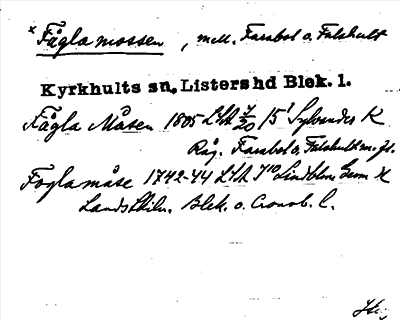 *Fågla mossen, mell. Farabol o. Fulshult
Kyrkhults sn, Listers hd Blek. l.
Fågla Måsen 1805 Lth 7/20 15¹ Sylvander K
Råg. Farabol o. Fulshult m. fl.
Foglamåse 1742-44 Lth 7¹⁰ Lindblom Geom K
Landskiln. Blek. o. Cronob. l.